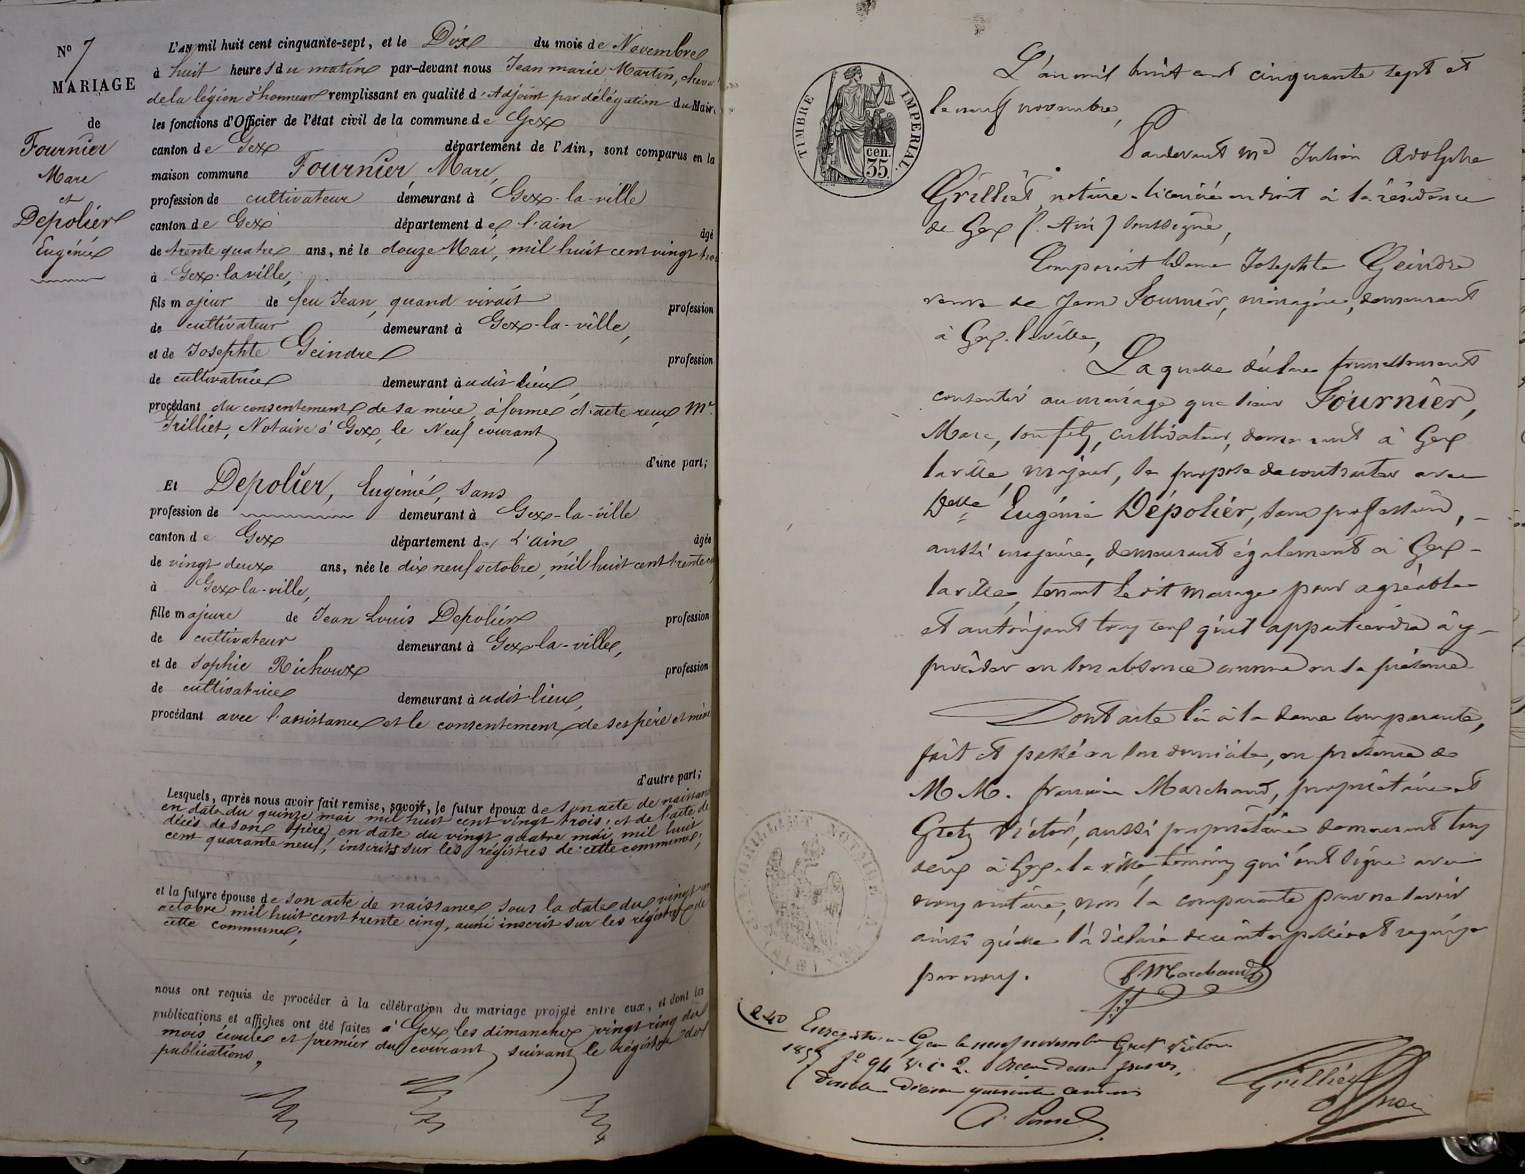 N° 7
MARIAGE
de
Fournier
Marc
et
Depolier
Eugénie
L'AN mil huit cent cinquante-sept, et le Dix du mois de Novembre
à huit heures du matin par-devant nous Jean marie Martin, cheval
de la légion d'honneur remplissant en qualité d'Adjoint par délégation du Maire
les fonctions d'Officier de l'état civil de la commune de Gex
canton de Gex département de l'Ain, sont comparus en la
maison commune Fournier, Marc,
profession de cultivateur demeurant à Gex-la-ville
canton de Gex département de l'ain âgé
de trente quatre ans, né le douze Mai, mil huit cent vingt trois
à Gex-la ville,
fils majeur de feu Jean, quand vivait profession
de cultivateur demeurant à Gex-la-ville,
et de Josephte Geindre profession
de cultivatrice demeurant audit lieu,
procédant du consentement de sa mère, à forme d'acte reçu Mr.
Grilliet, Notaire à Gex, le Neuf courant
d'une part;
Et Depolier, Eugénie, sans
profession de demeurant à Gex-la-ville
canton de Gex département de L'ain âgée
de vingt deux ans, née le dix neuf octobre, mil huit cent trente
à Gex-la-ville,
fille majeure de Jean Louis Depolier profession
de cultivateur demeurant à Gex-la-ville,
et de Sophie Richoux profession
de cultivatrice demeurant audit lieu,
procédant avec l'assistance et le consentement de ses père et mère
d'autre part;
Lesquels, après nous avoir fait remise, savoir, le futur époux de son acte de naissance
en date du quinze mai mil huit cent vingt trois; et de l'acte de
décès de son père, en date du vingt quatre mai, mil huit
cent quarante neuf, inscrits sur les régistres de cette commune;
et la future épouse de son acte de naissance sous la date du vingt
octobre mil huit cent trente cinq, aussi inscrit sur les régistres de
cette commune;
nous ont requis de procéder à la célébration du mariage projeté entre eux, et dont les
publications et affiches ont été faites à Gex les dimanches vingt cinq du
mois écoulé et premier du courant, suivant le régistre des
publications.
TIMBRE IMPERIAL
cen.
35
L'an mil huit cent cinquante sept et
le neuf novembre,
Pardevant Me Julien Adolphe
Grilliet, notaire licencié en droit à la résidence
de Gex (Ain) soussigné,
Comparait Dame Josephte Geindre
veuve de Jean Fournier, ménagère, demeurant
à Gex-la-ville,
Laquelle déclare formellement
consentir au mariage que sieur Fournier,
Marc, son fils, cultivateur, demeurant à Gex
la ville, majeur, se propose de contracter avec
Delle Eugénie Dépolier, sans profession,
aussi majeure, demeurant également à Gex-
la ville, tenant ledit mariage pour agréable
et autorisant tous ceux qu'il appartiendra à y
procéder en son absence comme en sa présence.
Dont acte lu à la dame comparante,
fait et passé en son domicile, en présence de
MM. Marchand, propriétaire et
Victor, aussi propriétaire demeurant tous
deux à Gex-la ville, témoins qui ont signé avec
nous notaire, non la comparante pour ne savoir
ainsi qu'elle l'a déclaré de ce interpellée et requise
par nous.
f. Marchand
2.40
Enregistré à Gex le neuf novembre
1857 fo 94 Vo c. 2. Reçu deux francs,
double décime quarante centimes
Victor
Grilliet